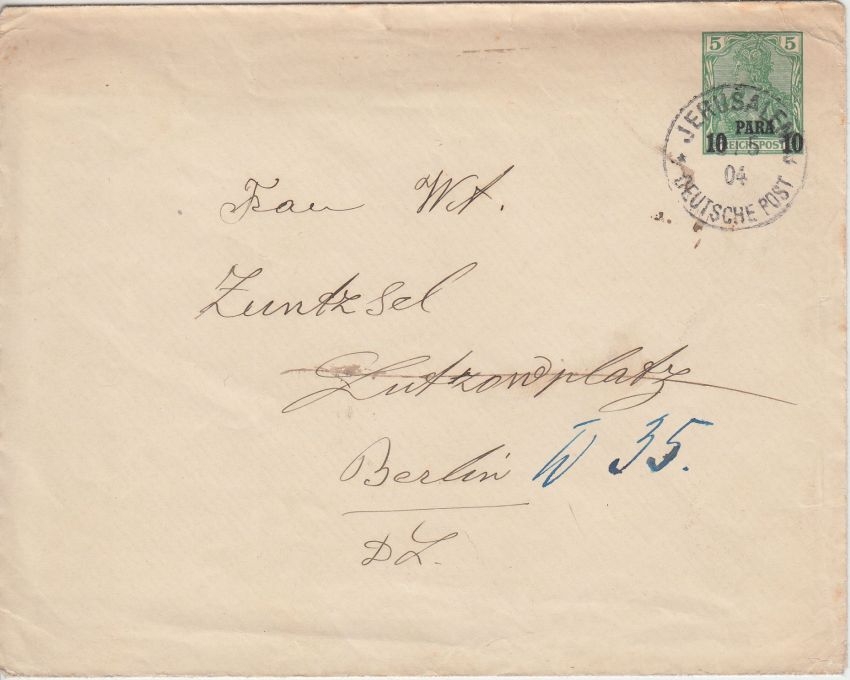 5 5
10 PARA 10
REICHSPOST
JERUSALEM
5
04
DEUTSCHE POST
Frau Wt.
Zuntz Sel
Lutzowplatz
Berlin W 35.
D L.